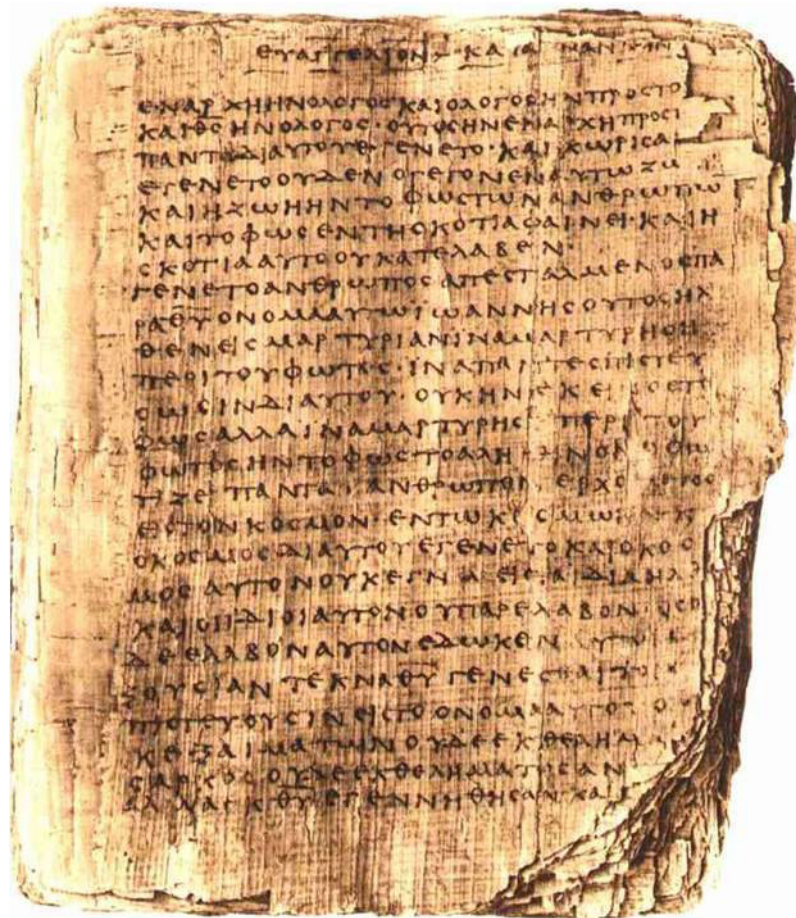 ΕΥΑΓΓΕΛΙΟΝ ΚΑΤΑ
ΕΝΑΡΧΗΗΝΟΛΟΓΟΣΚΑΙΟΛΟΓΟΣΗΝΠΡΟΣΤΟ
ΚΑΙΘΣΗΝΟΛΟΓΟΣ·ΟΥΤΟΣΗΝΕΝΑΡΧΗΠΡΟΣΤ
ΠΑΝΤΑΔΙΑΥΤΟΥΕΓΕΝΕΤΟ·ΚΑΙΧΩΡΙΣΑ
ΕΓΕΝΕΤΟΟΥΔΕΝΟΓΕΓΟΝΕΝΑΥΤΩΖΩ
ΚΑΙΗΖΩΗΗΝΤΟΦΩΣΤΩΝΑΝΘΡΩΠΩ
ΚΑΙΤΟΦΩΣΕΝΤΗΣΚΟΤΙΑΦΑΙΝΕΙ·ΚΑΙΗ
ΣΚΟΤΙΑΑΥΤΟΟΥΚΑΤΕΛΑΒΕΝ·
ΓΕΝΕΤΟΑΝΘΡΩΠΟΣΑΠΕΣΤΑΛΜΕΝΟΣΠΑ
ΡΑΘΥΟΝΟΜΑΑΥΤΩΙΩΑΝΝΗΣΟΥΤΟΣΗΛ
ΘΕΝΕΙΣΜΑΡΤΥΡΙΑΝΙΝΑΜΑΡΤΥΡΗΣΗ
ΠΕΡΙΤΟΥΦΩΤΟΣ·ΙΝΑΠΑΝΤΕΣΠΙΣΤΕΥ
ΣΩΣΙΝΔΙΑΥΤΟΥ·ΟΥΚΗΝΕΚΕΙΝΟΣΤΟ
ΦΩΣΑΛΛΑΙΝΑΜΑΡΤΥΡΗΣ ΠΕΡΙΤΟΥ
ΦΩΤΟΣΗΝΤΟΦΩΣΤΟΑΛΗ ΙΝΟΝ ΟΦΩ
ΤΙΖΕΙ ΠΑΝΤΑ ΑΝΘΡΩΠΟΝ ΕΡΧΟ
ΕΙΣΤΟΝΚΟΣΜΟΝ·ΕΝΤΩΚΟΣΜΩ
ΟΚΟΣΜΟΣΔΙΑΥΤΟΥΕΓΕΝΕΤΟΚΑΙΟΚΟΣ
ΜΟΣΑΥΤΟΝΟΥΚΕΓΝΩ ΕΙΣ ΑΙΔΙΑΗΛ
ΚΑΙΟΙΙΔΙΟΙΑΥΤΟΝΟΥΠΑΡΕΛΑΒΟΝ·ΟΣΟ
ΔΕΕΛΑΒΟΝΑΥΤΟΝΕΔΩΚΕΝ
ΞΟΥΣΙΑΝΤΕΚΝΑΘΥΓΕΝΕΣΘΑΙ
ΠΙΣΤΕΥΟΥΣΙΝΕΙΣΤΟΟΝΟΜΑΑΥΤΟΥ
ΚΕΞΑΙΜΑΤΩΝΟΥΔΕΕΚΘΕΛΗΜΑ
ΣΑΡΚΟΣΟΥΔΕΕΚΘΕΛΗΜΑΤΟΣΑΝ
ΑΛΛΑΕΚΘΥΕΓΕΝΝΗΘΗΣΑΝΚΑΙ